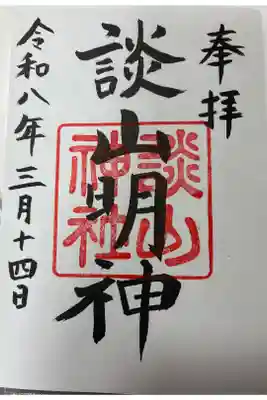 奉拝
談山明神
談山神社
令和八年三月十四日